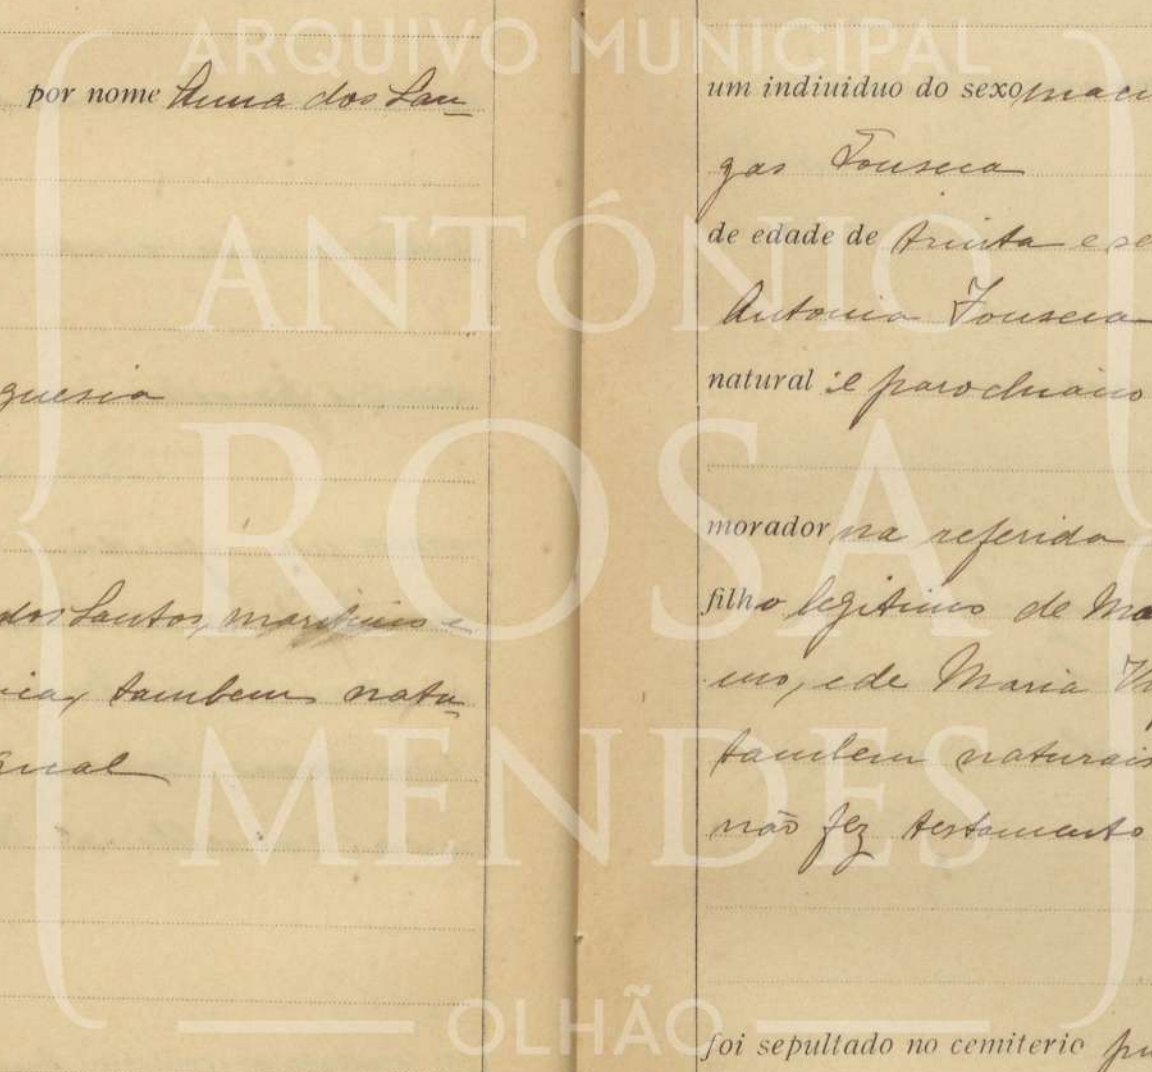 ARQUIVO MUNICIPAL
ANTÓNIO
ROSA
MENDES
OLHÃO
por nome Anna dos San
guesia
dos Santos, maritimo e
tambem natu
um indiuiduo do sexo mascu
gas Fonseca
de edade de trinta e se
Antonia Fonseca
natural e parochiano
morador na referida
filho legitimo de Ma
mo, e de Maria
tambem naturais
não fez testamento
foi sepultado no cemiterio pu